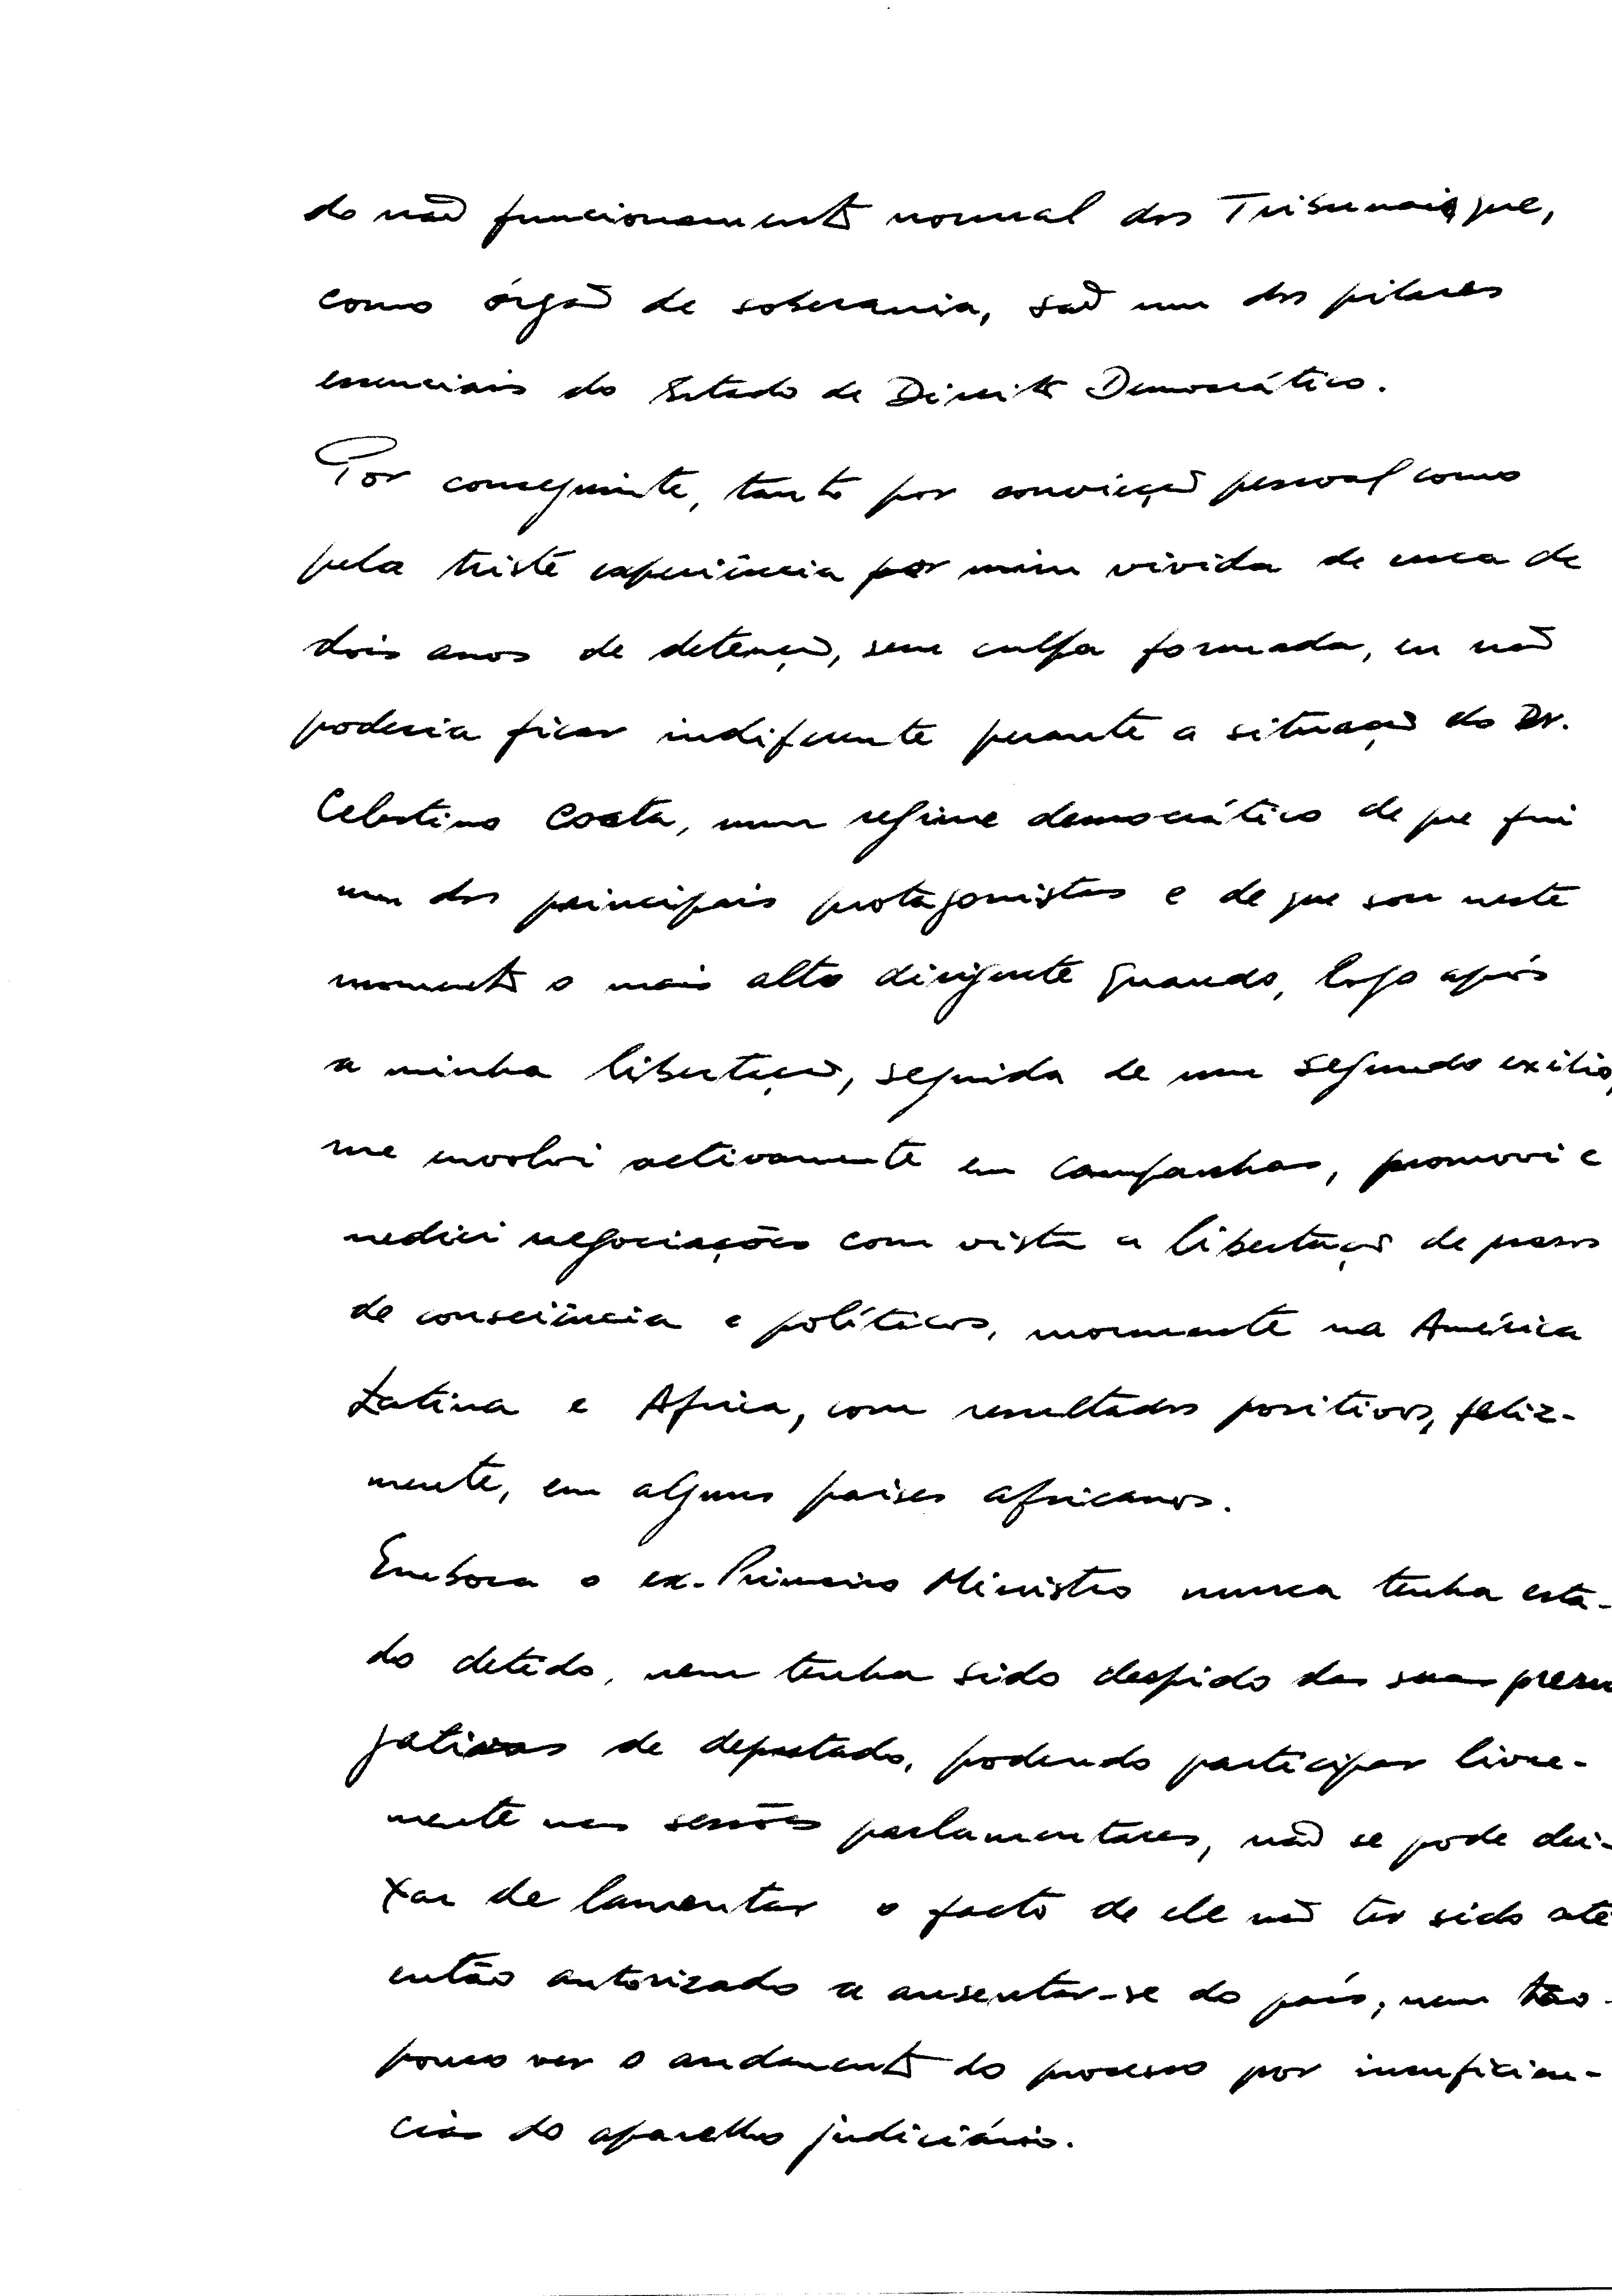 do não funcionamento normal dos Tribunais que,
como órgão de soberania, são um dos pilares
essenciais do Estado de Direito Democrático.
Por conseguinte, tanto por convicção pessoal como
pela triste experiência por mim vivida de cerca de
dois anos de detenção, sem culpa formada, eu não
poderia ficar indiferente perante a situação do Dr.
Celestino Costa, num regime democrático de que fui
um dos principais protagonistas e de que sou neste
momento o mais alto dirigente quando, logo após
a minha libertação, seguida de um segundo exílio,
me envolvi activamente em campanhas, promovi e
mediei negociações com vista a libertação de presos
de consciência e políticos, mormente na América
Latina e Africa, com resultados positivos, feliz-
mente, em alguns países africanos.
Embora o ex-Primeiro Ministro nunca tenha esta-
do detido, nem tenha sido despido das suas prerro
gativas de deputado, podendo participar livre-
mente nas sessões parlamentares, não se pode dei-
xar de lamentar o facto de ele não ter sido até
então autorizado a ausentar-se do país, nem tão-
pouco ver o andamento do processo por insuficiên-
cias do aparelho judiciário.